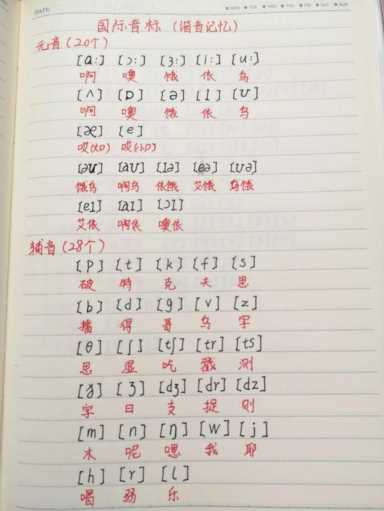 国际音标（谐音记忆）
元音（20个）
[ɑ:] [ɔ:] [ɜ:] [i:] [u:]
啊 噢 饿 依 乌
[ʌ] [ɒ] [ə] [I] [ʊ]
啊 噢 饿 依 乌
[æ] [e]
哎(大口) 哎(小口)
[əʊ] [aʊ] [Iə] [eə] [ʊə]
饿乌 啊乌 依饿 艾饿 乌饿
[eI] [aI] [ɔI]
艾依 啊依 噢依
辅音（28个）
[p] [t] [k] [f] [s]
破 特 克 夫 思
[b] [d] [g] [v] [z]
播 得 哥 乌 字
[θ] [ʃ] [tʃ] [tr] [ts]
思 湿 吃 戳 测
[ð] [ʒ] [dʒ] [dr] [dz]
字 日 支 捉 则
[m] [n] [ŋ] [w] [j]
木 呢 嗯 我 耶
[h] [r] [l]
喝 弱 乐